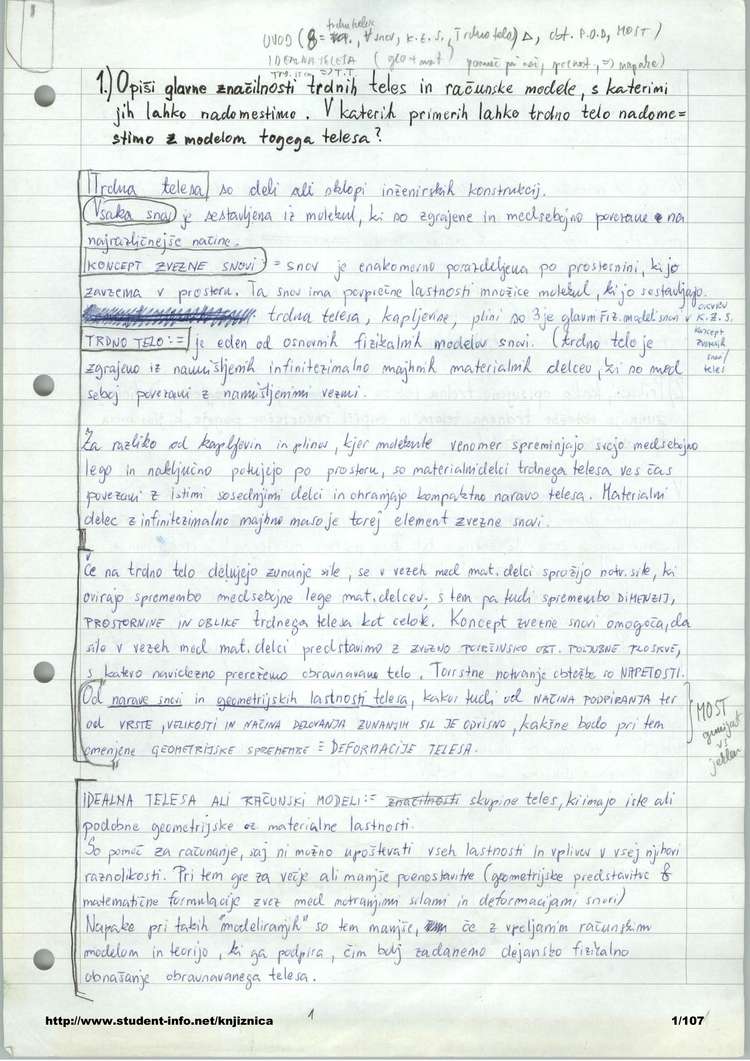 trdna telesa
UVOD ( , ∀ snov, K.Z.S., Trdno telo) Δ, obt. P.O.D, MOST )
IDEALNA TELESA ( geo + mat ) pomoč pri rač, =) napake)
1.) Opiši glavne značilnosti trdnih teles in računske modele, s katerimi
jih lahko nadomestimo. V katerih primerih lahko trdno telo nadome=
stimo z modelom togega telesa?
Trdna telesa so deli ali sklopi inženirskih konstrukcij.
Vsaka snov je sestavljena iz molekul, ki so zgrajene in medsebojno povezane na
najrazličnejše načine.
KONCEPT ZVEZNE SNOVI = snov je enakomerno porazdeljena po prostornini, ki jo
zavzema v prostoru. Ta snov ima povprečne lastnosti množice molekul, ki jo sestavljajo.
trdna telesa, kapljevine, plini so 3je glavni fiz. modeli snovi v OKVIRU K.Z.S.
koncept
zveznih
snovi/
teles
TRDNO TELO:= je eden od osnovnih fizikalnih modelov snovi. (trdno telo je
zgrajeno iz namišljenih infinitezimalno majhnih materialnih delcev, ki so med
seboj povezani z namišljenimi vezmi.
Za razliko od kapljevin in plinov, kjer molekule venomer spreminjajo svojo medsebojno
lego in naključno potujejo po prostoru, so materialni delci trdnega telesa ves čas
povezani z istimi sosednjimi delci in ohranjajo kompaktno naravo telesa. Materialni
delec z infinitezimalno majhno maso je torej element zvezne snovi.
Če na trdno telo delujejo zunanje sile, se v vezeh med mat. delci sprožijo notr. sile, ki
ovirajo spremembo medsebojne lege mat. delcev, s tem pa tudi spremembo DIMENZIJ,
PROSTORNINE IN OBLIKE trdnega telesa kot celote. Koncept zvezne snovi omogoča, da
silo v vezeh med mat. delci predstavimo z ZVEZNO POVRŠINSKO OBT. POLJUBNE PLOSKVE,
s katero navidezno prerežemo obravnavano telo. Tovrstne notranje obtežbe so NAPETOSTI.
Od narave snovi in geometrijskih lastnosti telesa, kakor tudi od NAČINA PODPIRANJA ter
od VRSTE, VELIKOSTI IN NAČINA DELOVANJA ZUNANJIH SIL JE ODVISNO, kakšne bodo pri tem
omenjene GEOMETRIJSKE SPREMEMBE = DEFORMACIJE TELESA.
MOST
gumijast
vs
jeklen
IDEALNA TELESA ALI RAČUNSKI MODELI:= značilnosti skupine teles, ki imajo iste ali
podobne geometrijske oz. materialne lastnosti.
So pomoč za računanje, saj ni možno upoštevati vseh lastnosti in vplivov v vsej njihovi
raznolikosti. Pri tem gre za večje ali manjše poenostavitve (geometrijske predstavitve &
matematične formulacije zvez med notranjimi silami in deformacijami snovi)
Napake pri takih "modeliranjih" so tem manjše, če z vpeljanim računskim
modelom in teorijo, ki ga podpira, čim bolj zadanemo dejansko fizikalno
obnašanje obravnavanega telesa.
1
http://www.student-info.net/knjiznica
1/107